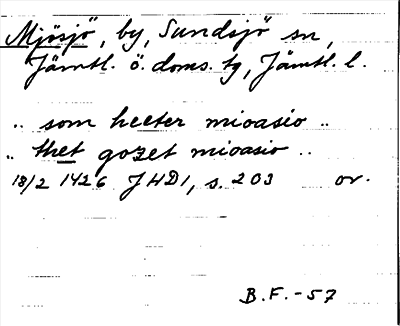 Mjösjö, by, Sundsjö sn,
Jämtl. ö. doms. tg, Jämtl. l.
.. som heeter mioasio ..
.. thet gozet mioasio ..
18/2 1426 JHD1, s. 203 or.
B.F.-57